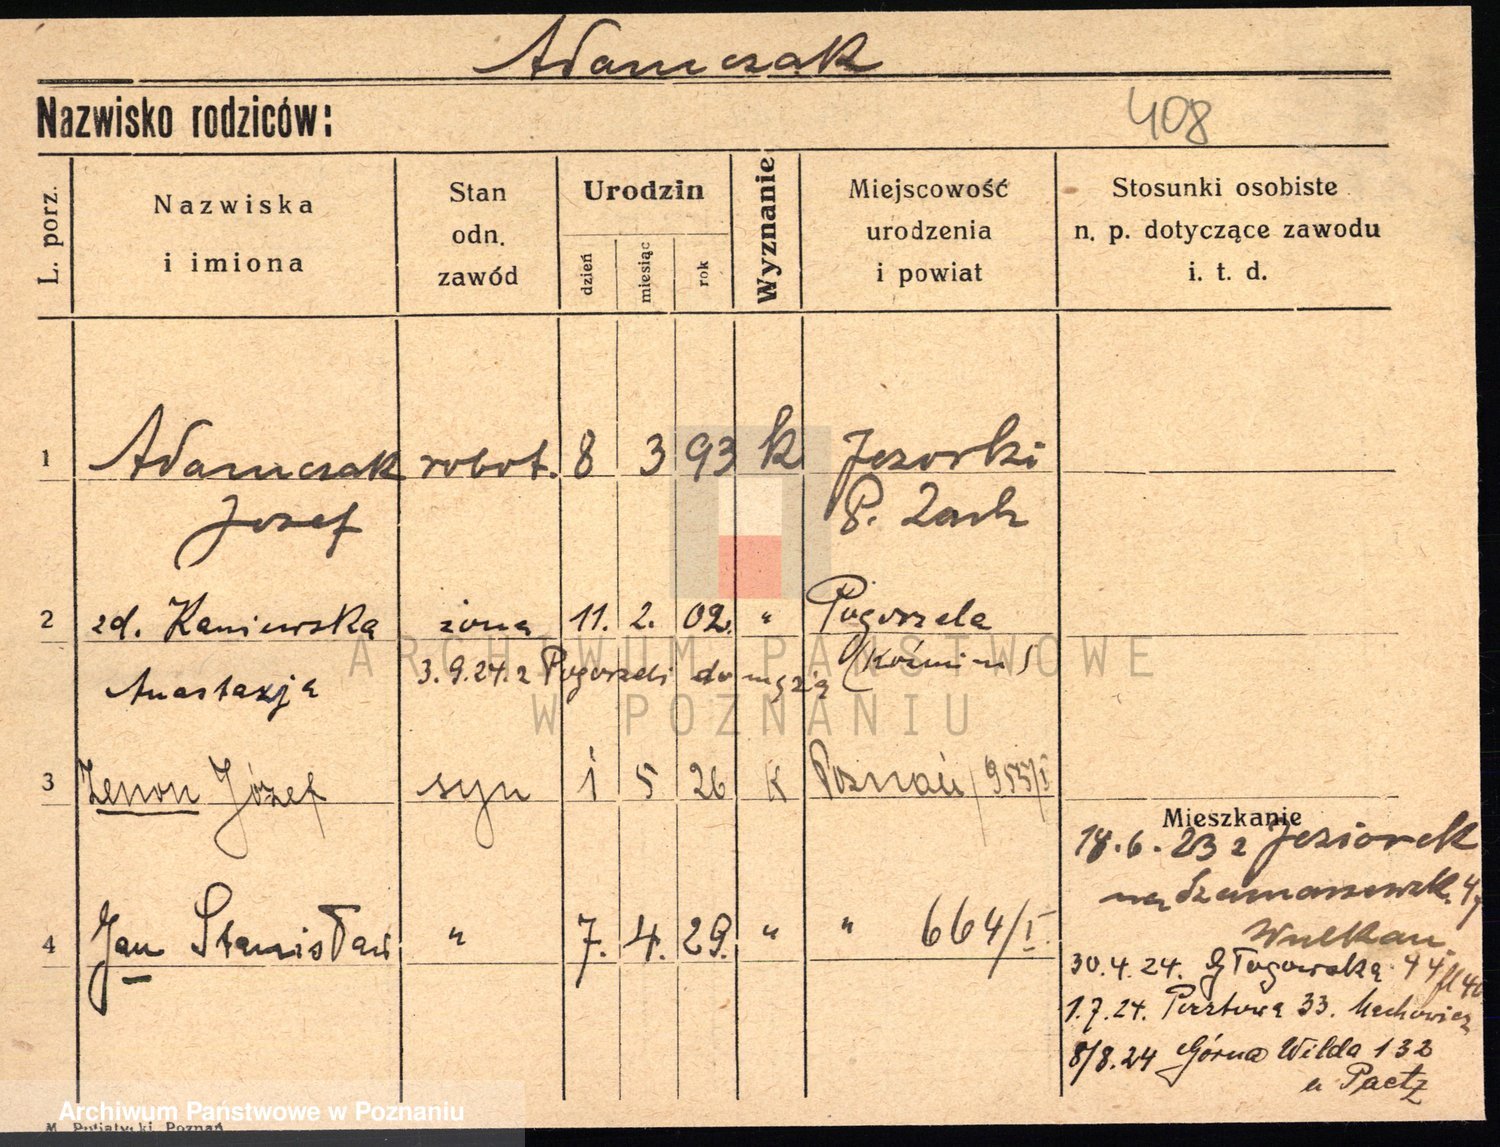 Adamczak
Nazwisko rodziców:
408
L. porz.
Nazwiska
i imiona
Stan
odn.
zawód
Urodzin
dzień
miesiąc
rok
Wyznanie
Miejscowość
urodzenia
i powiat
Stosunki osobiste
n. p. dotyczące zawodu
i. t. d.
1 Adamczak robot. 8 3 93 k Jezorki
Jozef P. Zach
2 zd. Kaniewska żona 11. 2. 02. " Pogorzela
Anastazja 3.9.24. z Pogorzeli do męża (Koźmin)
3 Zenon Józef syn 1 5 26 K Poznań 955/I
Mieszkanie
18.6.23 z Jeziorek
na Szamarzewsk.
Wulkan.
4 Jan Stanisław " 7. 4. 29. " " 664/I
30.4.24. Głogowska
1.7.24. Pocztowa 33. Machowicz
8/8.24 Górna Wilda 132
u Paetz
ARCHIWUM PAŃSTWOWE
W POZNANIU
Archiwum Państwowe w Poznaniu
M. Putiatycki, Poznań